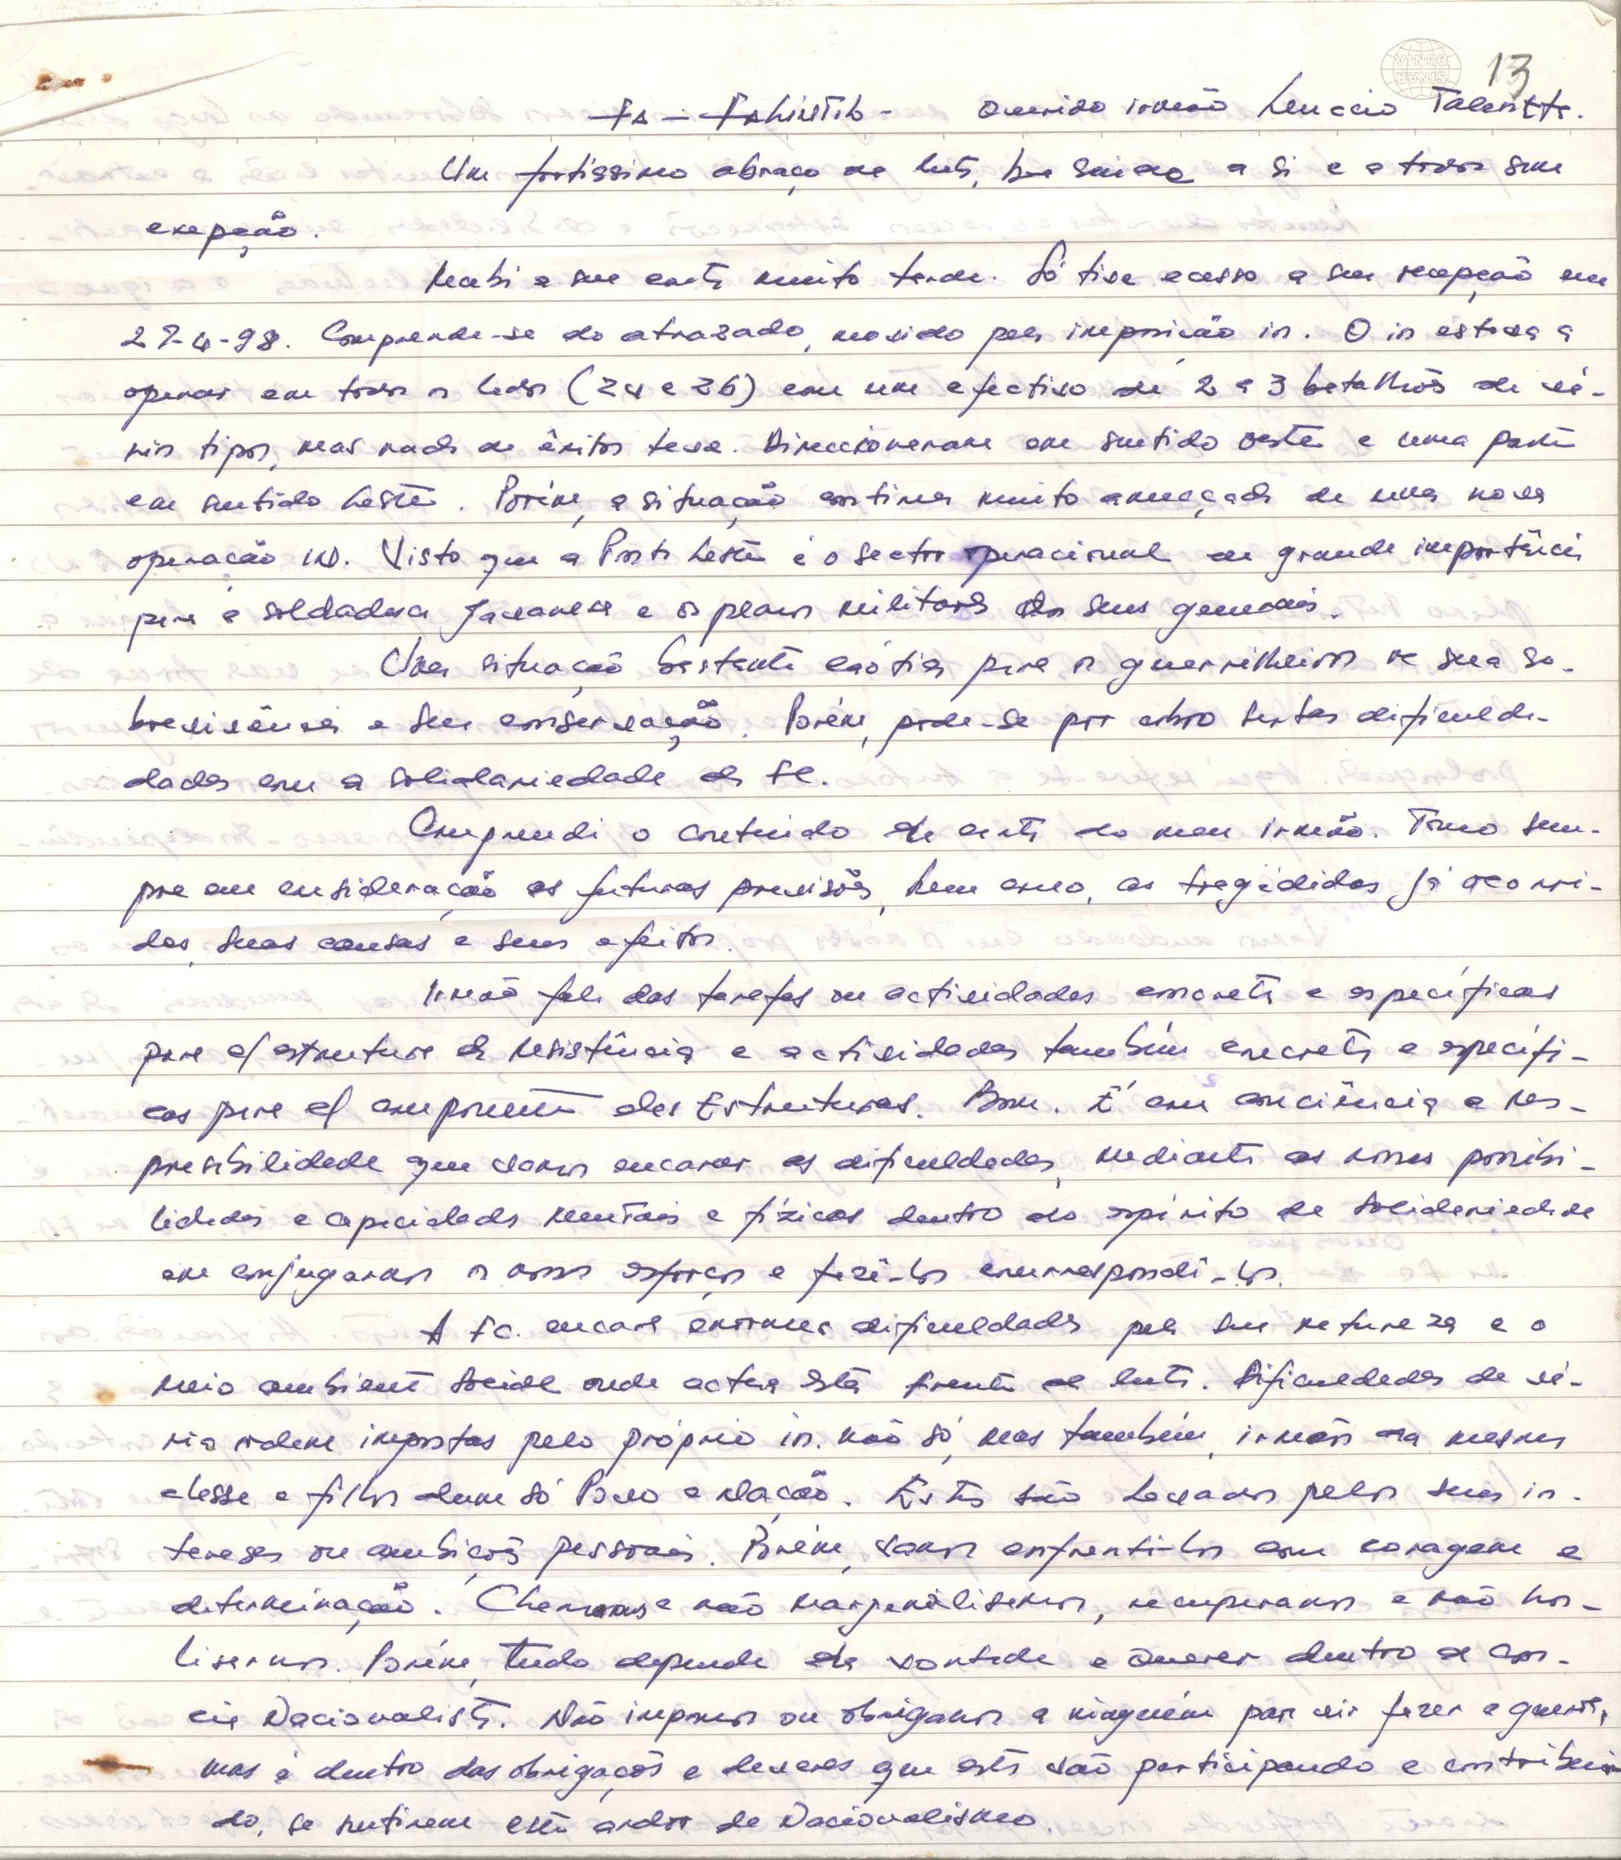 13
Querido irmão
Um fortíssimo abraço de luta, boa saúde a si e a todos sem
exepção.
Recebi a sua carta muito tarde. Só tive acesso a sua recepção em
27-4-98. Comprende-se do atrazado, movido pela imposição in. O in estava a
operar em todos os lados (24 e 26) com um efectivo de 2 a 3 batalhões de vá-
rios tipos, mas nada de êxitos teve. Direccionaram em sentido oeste e uma parte
em sentido Leste. Porém, a situação continua muito ameaçada de uma nova
operação in. Visto que a Ponta Leste é o sector operacional de grande importância
para a soldadesca Javanesa e os planos militares dos seus generais.
Uma situação bastante caótica para os guerrilheiros na sua so-
brevivência e sua conservação. Porém, pode-se por cobro tantas dificulda-
dades com a solidariedade da FC.
Comprendi o conteúdo da carta do meu irmão. Tomo sem-
pre em consideração as futuras previsões, bem como, as tragédidas já ocorri-
das, suas causas e seus efeitos.
Irmão fala das tarefas ou actividades concreta e específicas
para c/ estrutura da Resistência e actividades também concreta e específi-
cas para c/ componente das Estruturas. Bom. É com conciência e res-
ponsabilidade que vamos encarar as dificuldades, mediante as nossas possibi-
lidades e capacidades mentais e físicas dentro do espírito de solidariedade
em conjugarmos os nossos esforços e fazê-los
A FC. encara enormes dificuldades pela sua natureza e o
meio ambiente social onde actua esta frente de luta. Dificuldades de vá-
ria ordem impostas pelo próprio in. não só, mas também, irmãos da mesma
classe e filhos dum só Povo e Nação. Estes são Levados pelos seus in-
tereses ou ambições pessoais. Porém, vamos enfrentá-los com coragem e
determinação. Chamamos e não marginalisamos, recuperamos e não hos-
tisamos. Porém, tudo depende da vontade e querer dentro da cons-
cia Nacionalista. Não impomos ou obrigamos a ninguém para vir fazer a guerra,
mas é dentro das obrigações e deveres que estes vão participando e contribuin
do, se sentirem este ardor de Nacionalismo.